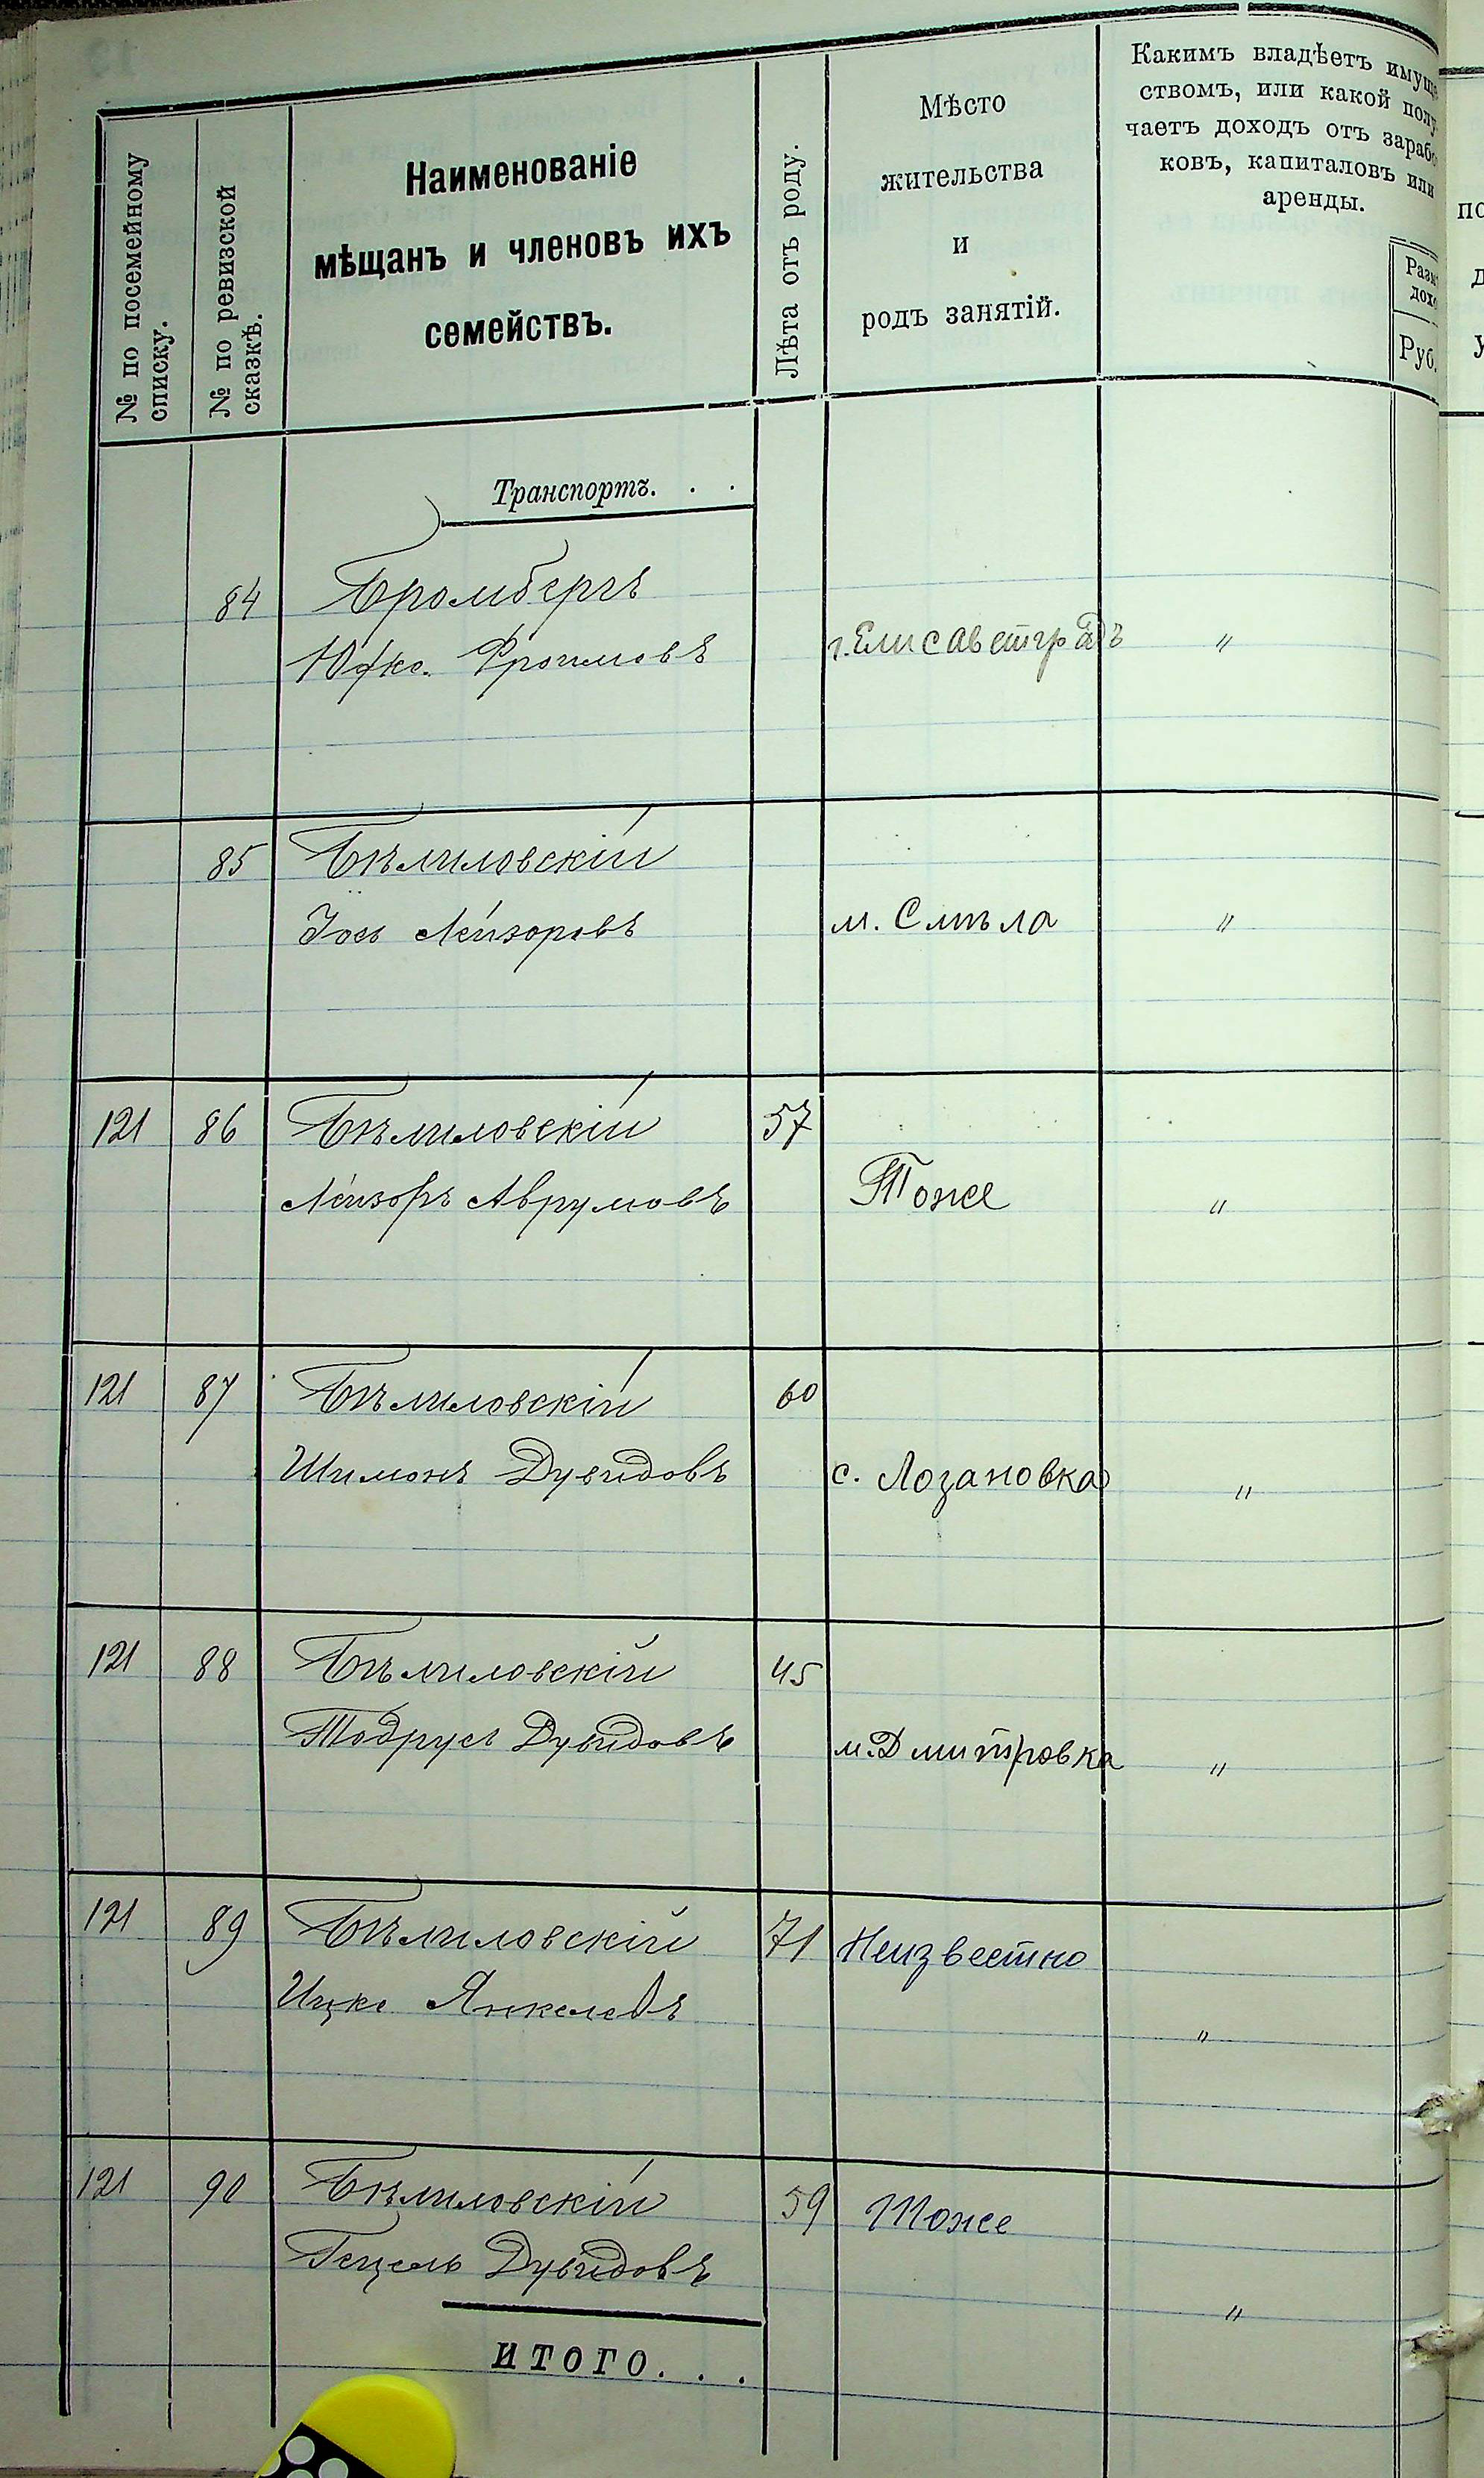 № по посемейному
списку.
№ по ревизской
сказкѣ.
Наименованіе
мѣщанъ и членовъ ихъ
семействъ.
Лѣта отъ роду.
Мѣсто
жительства
и
родъ занятій.
Какимъ владѣетъ имуще
ствомъ, или какой полу
чаетъ доходъ отъ зарабо
ковъ, капиталовъ или
аренды.
Разм
дохо
Руб.
Транспортъ. . .
84 Бромбергъ
Фроимовъ г. Елисаветградъ "
85 Бѣлиловскій
Іось Лейзоровъ м. Смѣла "
121 86 Бѣлиловскій 57
Лейзоръ Аврумовъ Тоже "
121 87 Бѣлиловскій 60
Шимонъ Дувидовъ с. Лозановка "
121 88 Бѣлиловскій 45
Тодрусъ Дувидовъ м. Дмитровка "
121 89 Бѣлиловскій 71 Неизвестно
Ицко Янкелевъ "
121 90 Бѣлиловскій 59 Тоже
Гецель Дувидовъ "
итого. . .